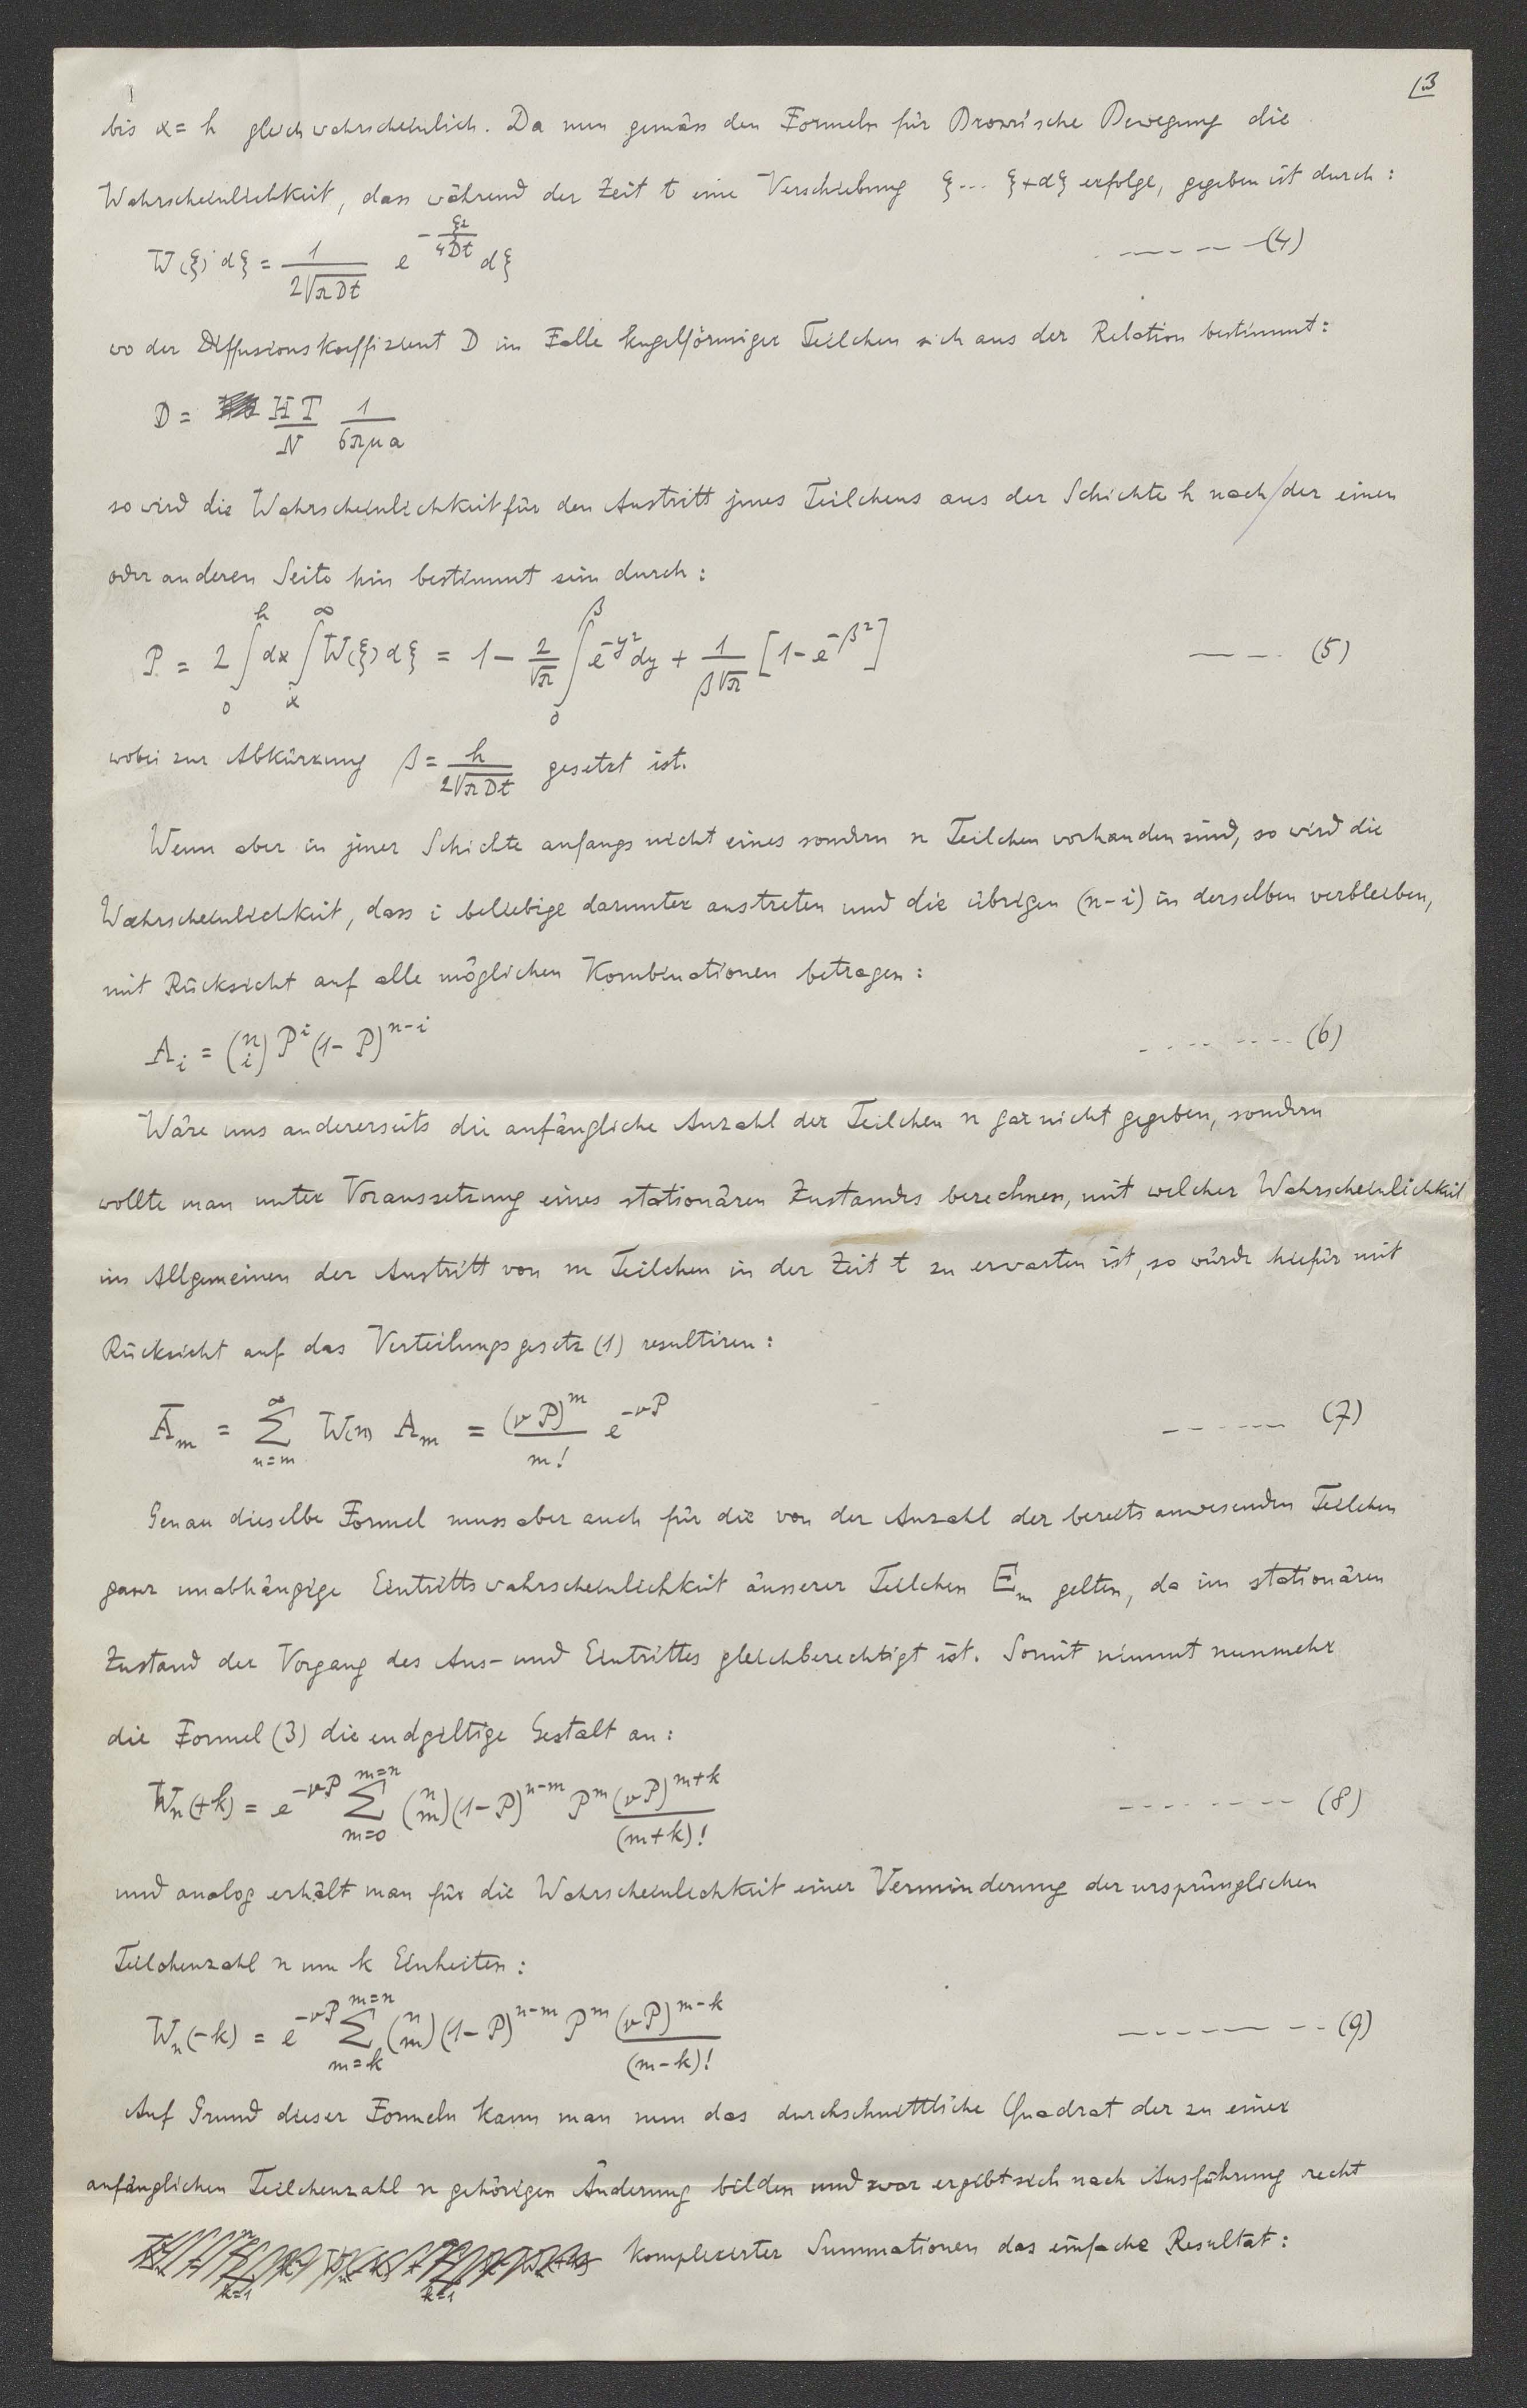 13
bis x = h gleichwahrscheinlich. Da nun gemäss den Formeln für Brown'sche Bewegung die
Wahrscheinlichkeit, dass während der Zeit t eine Verschiebung ξ... ξ+dξ erfolge, gegeben ist durch:
W(ξ) dξ = 1/(2√(πDt)) e^(-ξ²/4Dt) dξ ------(4)
wo der Diffusionskoeffizient D im Falle kugelförmiger Teilchen sich aus der Relation bestimmt:
D = HT/N 1/(6πμa)
so wird die Wahrscheinlichkeit für den Austritt jenes Teilchens aus der Schichte h nach der einen
oder anderen Seite hin bestimmt sein durch:
P = 2 ∫₀^h dx ∫ₓ^∞ W(ξ) dξ = 1 - 2/√π ∫₀^β e^(-y²) dy + 1/(β√π) [1 - e^(-β²)] ---- (5)
wobei zur Abkürzung β = h/(2√(πDt)) gesetzt ist.
Wenn aber in jener Schichte anfangs nicht eines sondern n Teilchen vorhanden sind, so wird die
Wahrscheinlichkeit, dass i beliebige darunter austreten und die übrigen (n-i) in derselben verbleiben,
mit Rücksicht auf alle möglichen Kombinationen betragen:
A_i = (n i) P^i (1-P)^(n-i) ------- (6)
Wäre uns andererseits die anfängliche Anzahl der Teilchen n gar nicht gegeben, sondern
wollte man unter Voraussetzung eines stationären Zustandes berechnen, mit welcher Wahrscheinlichkeit
im Allgemeinen der Austritt von m Teilchen in der Zeit t zu erwarten ist, so würde hiefür mit
Rücksicht auf das Verteilungsgesetz (1) resultiren:
Ā_m = Σ_(n=m)^∞ W(n) A_m = (νP)^m/m! e^(-νP) ------ (7)
Genau dieselbe Formel muss aber auch für die von der Anzahl der bereits anwesenden Teilchen
ganz unabhängige Eintrittswahrscheinlichkeit äusserer Teilchen E_m gelten, da im stationären
Zustand der Vorgang des Aus- und Eintrittes gleichberechtigt ist. Somit nimmt nunmehr
die Formel (3) die endgiltige Gestalt an:
W_n(+k) = e^(-νP) Σ_(m=0)^(m=n) (n m)(1-P)^(n-m) P^m (νP)^(m+k)/(m+k)! -------- (8)
und analog erhält man für die Wahrscheinlichkeit einer Verminderung der ursprünglichen
Teilchenzahl n um k Einheiten:
W_n(-k) = e^(-νP) Σ_(m=k)^(m=n) (n m)(1-P)^(n-m) P^m (νP)^(m-k)/(m-k)! -------- (9)
Auf Grund dieser Formeln kann man nun das durchschnittliche Quadrat der zu einer
anfänglichen Teilchenzahl n gehörigen Änderung bilden und zwar ergibt sich nach Ausführung recht
komplizierter Summationen das einfache Resultat: